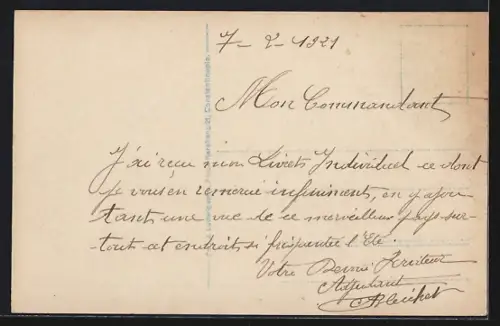 7-2-1921
Mon Commandant
J'ai reçu mon Livret Individuel ce dont
je vous en remercie infiniment, en y ajou
tant une vue de ce merveilleux pays sur-
tout cet endroit si fréquenté l'Eté.
Votre Dévoué Serviteur
Adjudant
Constantinople